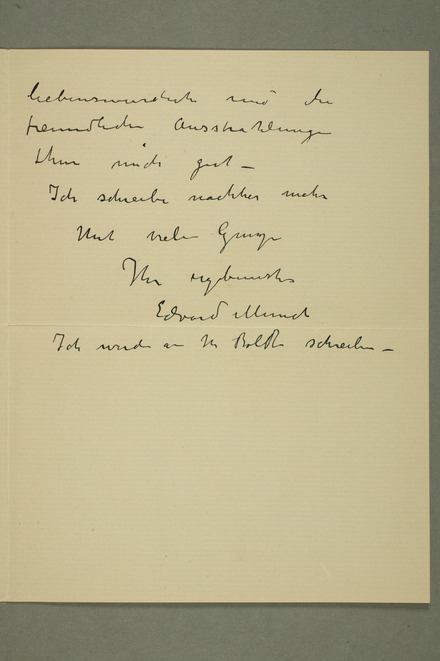 liebenswürdich und die
freundliche Ausstrahlunge
thun mich gut –
Ich schreibe nachher mehr
Mit viele Grüße
Ihr ergebenster
Edvard Munch
Ich werde an Hr schreiben –